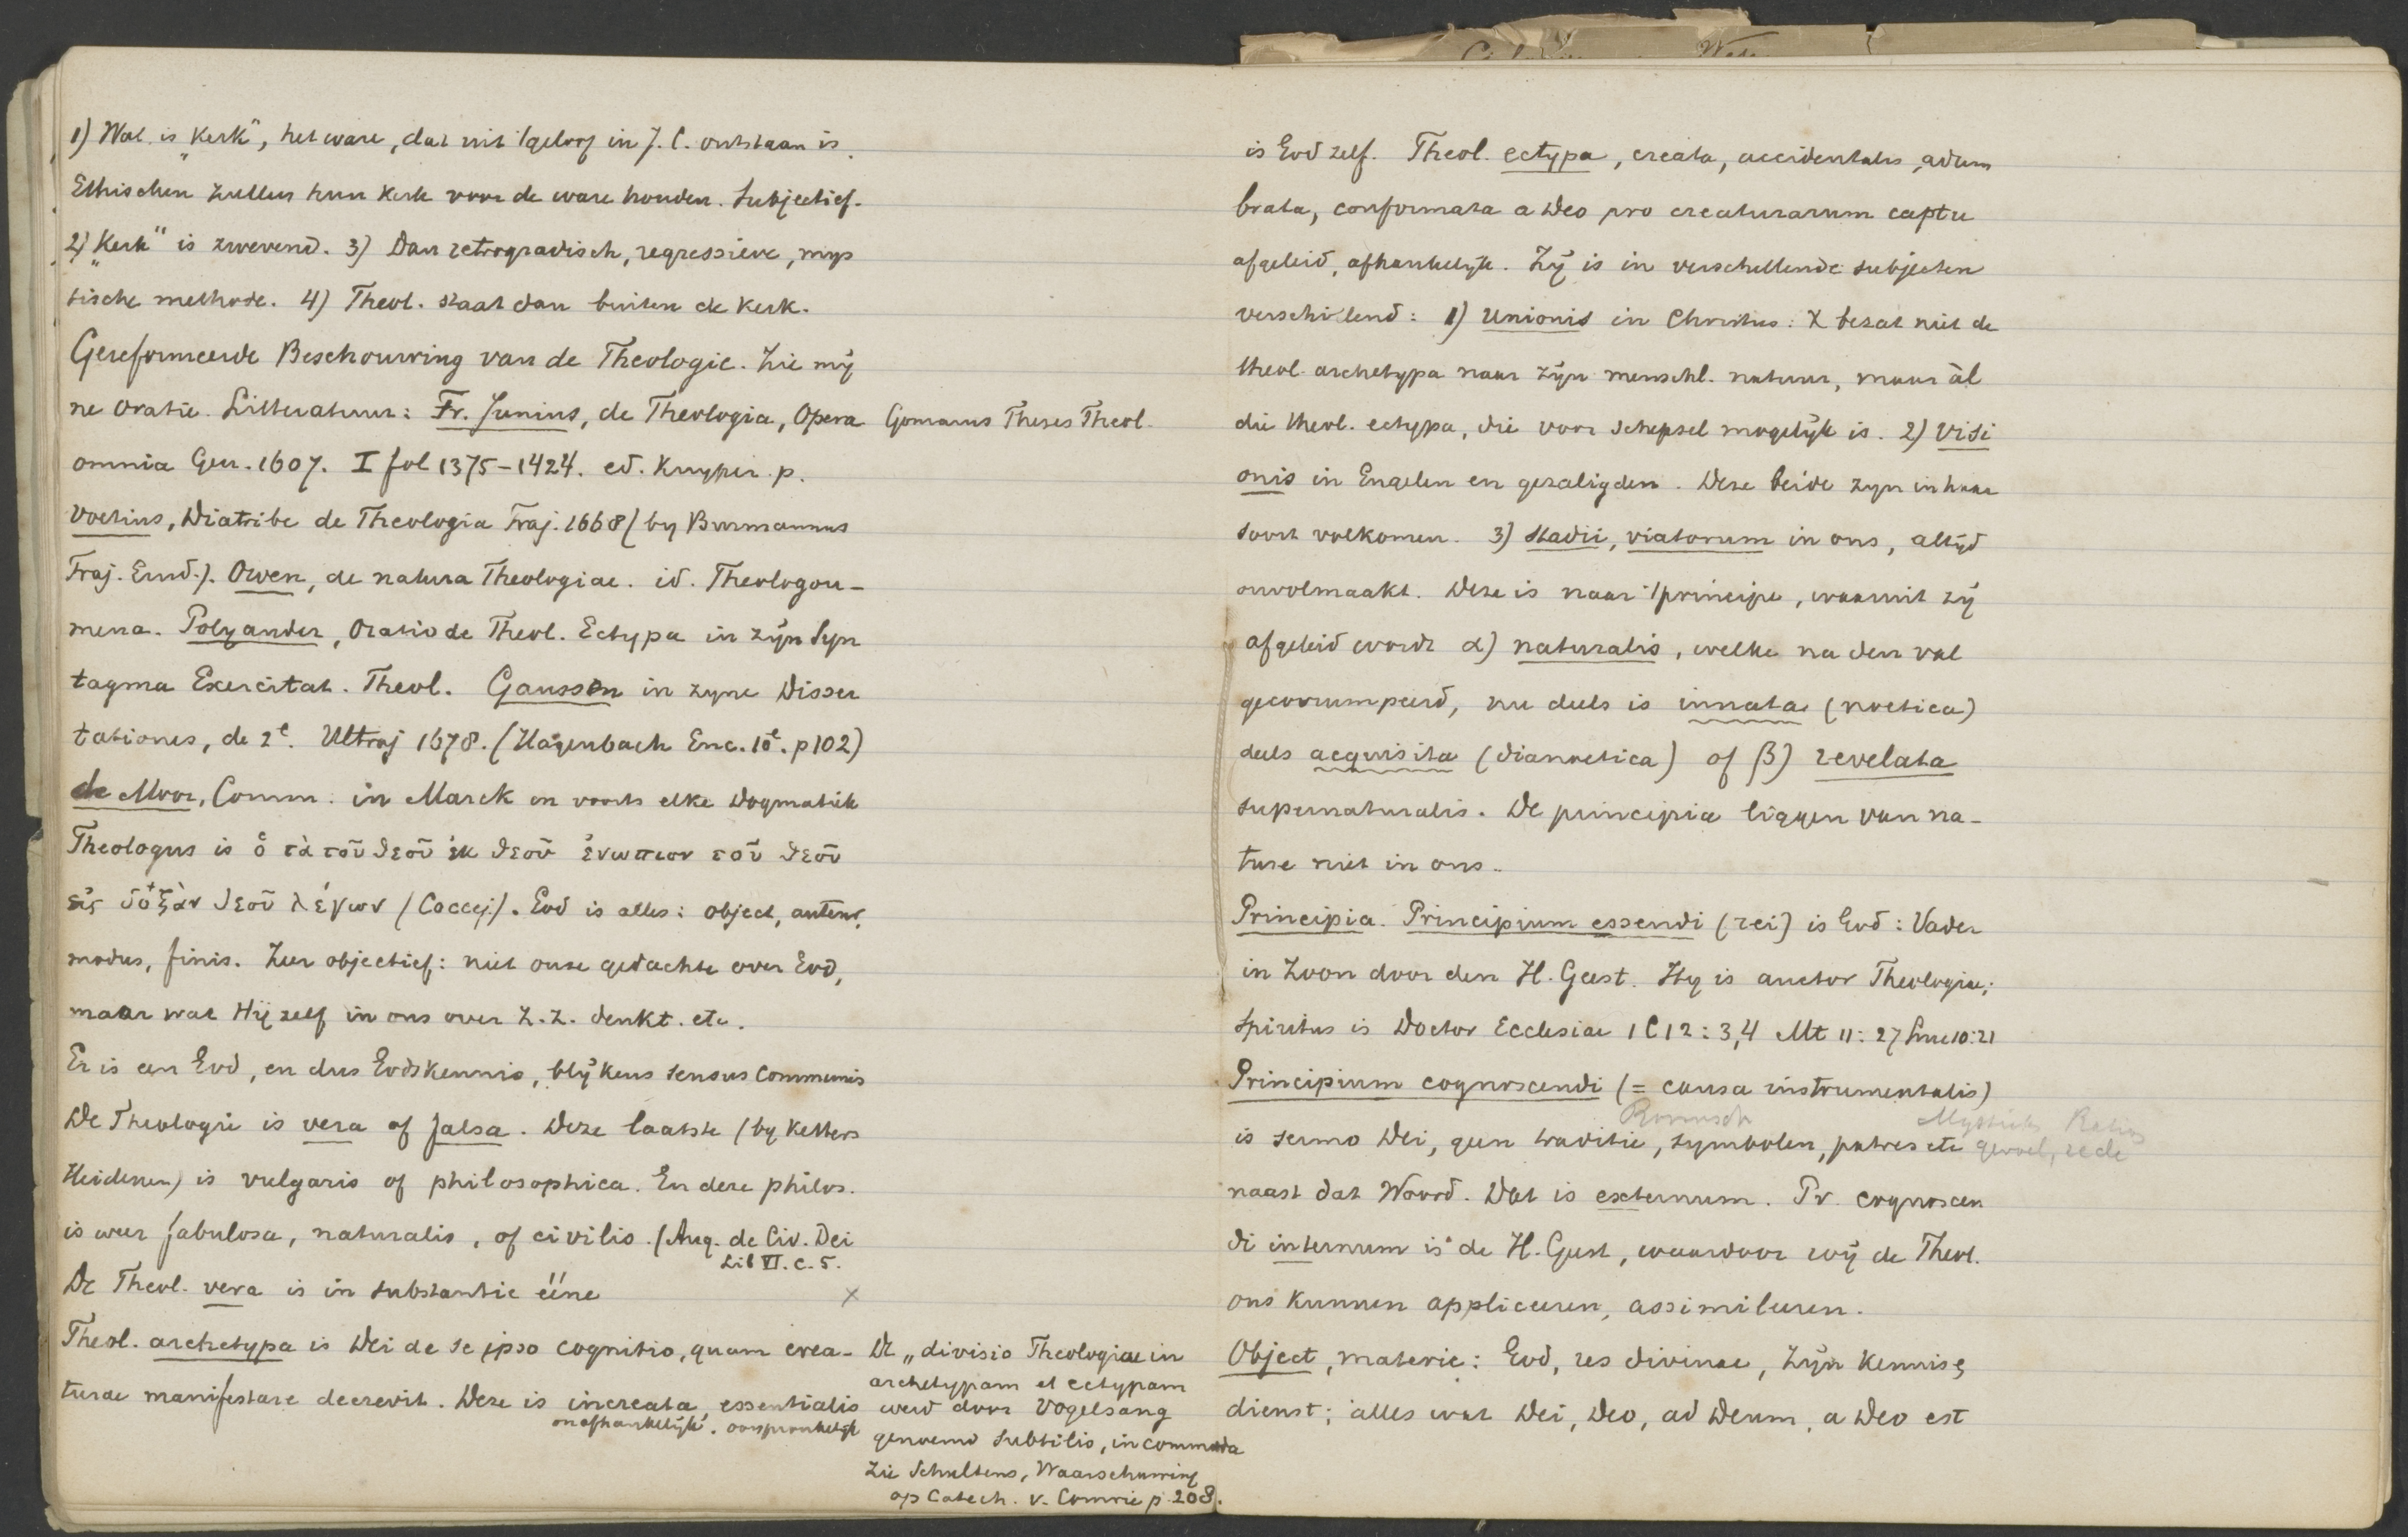 1) Wat is „Kerk", het ware, dat uit 't geloof in J. C. ontstaan is.
Ethischen zullen hun kerk voor de ware houden. Subjectief.
2) „Kerk" is zwevend. 3) Dan retrogradisch, regressieve, mys
tische methode. 4) Theol. staat dan buiten de kerk.
Gereformeerde Beschouwing van de Theologie. Zie mij
ne oratie. Litteratuur: Fr. Junius, de Theologia, Opera
omnia Gen. 1607. I fol 1375-1424. ed. Kuyper. p.
Voetius, Diatribe de Theologia Traj. 1668 (by Burmannus
Traj. Erud.). Owen, de natura Theologiae. id. Theologou-
mena. Polyander, Oratio de Theol. Ectypa in zijn Syn
tagma Exercitat. Theol. Gaussen in zyne Disser
tationes, de 2e. Ultraj 1678. (Hagenbach Enc. 10e. p 102)
de Moor, Comm. in Marck en voorts elke Dogmatiek
Theologus is ὁ τὰ τοῦ θεοῦ ἐκ θεοῦ ἐνωπιον τοῦ θεοῦ
εἰς δόξαν θεοῦ λέγων (Coccej.). God is alles: object, auteur,
modus, finis. Zeer objectief: niet onze gedachte over God,
maar wat Hij zelf in ons over Z. Z. denkt. etc.
Er is een God, en dus Godskennis, blijkens sensus communis
De Theologie is vera of falsa. Deze laatste (by Ketters
Heidenen) is vulgaris of philosophica. En deze philos.
is weer fabulosa, naturalis, of civilis. (Aug. de Civ. Dei
Lib VI. c. 5.
De Theol. vera is in substantie ééne ×
Theol. archetypa is Dei de se ipso cognitio, quam crea-
turae manifestare decrevit. Deze is increata, essentialis
onafhankelijk. oorspronkelijk
Gomarus Theses Theol.
De „divisio Theologiae in
archetypam et ectypam
werd door Vogelsang
genoemd subtilis, incommoda
Zie Schultens, Waarschuwing
op Catech. v. Comrie p. 208.
is God zelf. Theol. ectypa, creata, accidentalis, adum
brata, conformata a Deo pro creaturarum captu
afgeleid, afhankelijk. Zij is in verschillende subjecten
verschillend: 1) unionis in Christus: X bezat niet de
theol. archetypa naar zijn menschl. natuur, maar àl
die theol. ectypa, die voor schepsel mogelijk is. 2) visi
onis in Engelen en gezaligden. Deze beide zyn in haar
soort volkomen. 3) stadii, viatorum in ons, altijd
onvolmaakt. Deze is naar 't principe, waaruit zij
afgeleid wordt α) naturalis, welke na den val
gecorrumpeerd, nu deels is innata (noetica)
deels acquisita (dianoetica) of β) revelata
supernaturalis. De principia liggen van na-
ture niet in ons.
Principia. Principium essendi (rei) is God: Vader
in Zoon door den H. Geest. Hy is auctor Theologiae;
Spiritus is Doctor Ecclesiae 1 C 12: 3,4 Mt 11: 27 Luc 10:21
Principium cognoscendi (= causa instrumentalis)
Roomsch Mystiek Ratio
is sermo Dei, geen traditie, symbolen, patres etc gevoel, rede
naast dat Woord. Dat is externum. Pr. cognoscen
di internum is de H. Geest, waardoor wij de Theol.
ons kunnen appliceeren, assimileeren.
Object, materie: God, res divinae, Zijn Kennis &
dienst; alles wat Dei, Deo, ad Deum, a Deo est